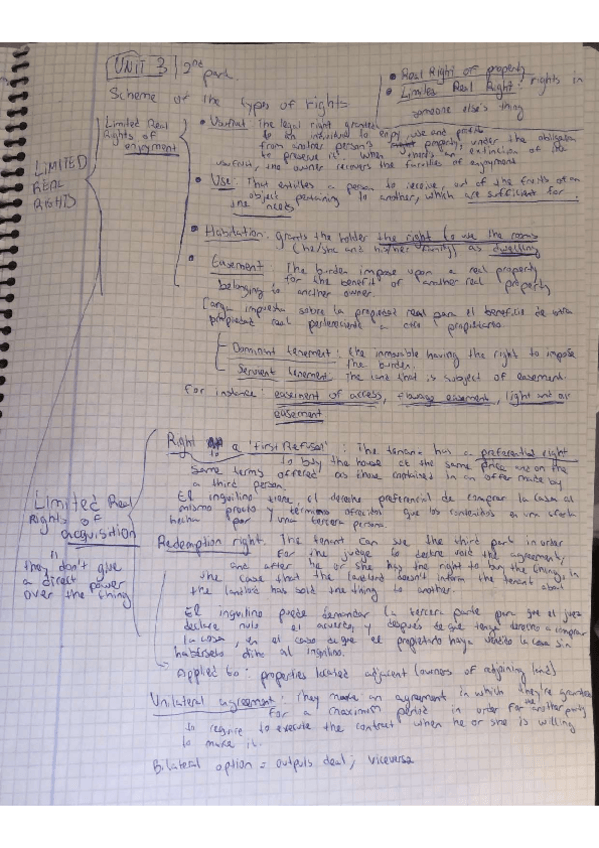 UNIT 3 / 2nd part
Scheme of the types of rights
• Real Right of property
• Limited Real Right: rights in
someone else's thing
LIMITED
REAL
RIGHTS
Limited Real
Rights of
enjoyment
• Usufruct: The legal right granted
to an individual to enjoy, use and profits
from another person's property, under the obligation
to preserve it. When there's an extinction of the
usufruit, the owner recovers the faculties of enjoyment
• Use: That entitles a person to receive, out of the fruits of an
object pertaining to another, which are sufficient for
the needs
• Habitation: grants the holder the right to use the rooms
(he/she and his/her family) as dwelling
• Easement: The burden impose upon a real property
for the benefit of another real property
belonging to another owner.
Carga impuesta sobre la propiedad real para el beneficio de otra
propiedad real perteneciente a otro propietario.
Dominant tenement: the immovable having the right to impose
the burden.
Servient tenement: The land that is subject of easement.
For instance easement of access, easement, light and air
easement
Limited Real
Rights of
acquisition
they don't give
a direct power
over the thing
Right a 'first Refusal': The tenant has a preferential right
to buy the house at the same price and on the
same terms offered as those contained in an offer made by
a third person.
El inquilino tiene el derecho preferencial de comprar la casa al
mismo precio y términos ofrecidos que los contenidos en una oferta
hecha por una tercera persona.
Redemption right: The tenant can sue the third part in order
for the judge to declare void the agreement,
and after he or she has the right to buy the thing, in
the case that the landlord doesn't inform the tenant about
the landlord has sold the thing to another.
El inquilino puede demandar la tercera parte para que el juez
declare nulo el acuerdo, y después de que tenga derecho a comprar
la cosa, en el caso de que el propietario haya vendido la cosa sin
habérselo dicho al inquilino.
Applied to: properties located adjacent (owners of adjoining land)
Unilateral agreement: They made an agreement in which they're granted
for a maximum period in order for the another party
to require to execute the contract when he or she is willing
to make it.
Bilateral option = outputs deal; viceversa